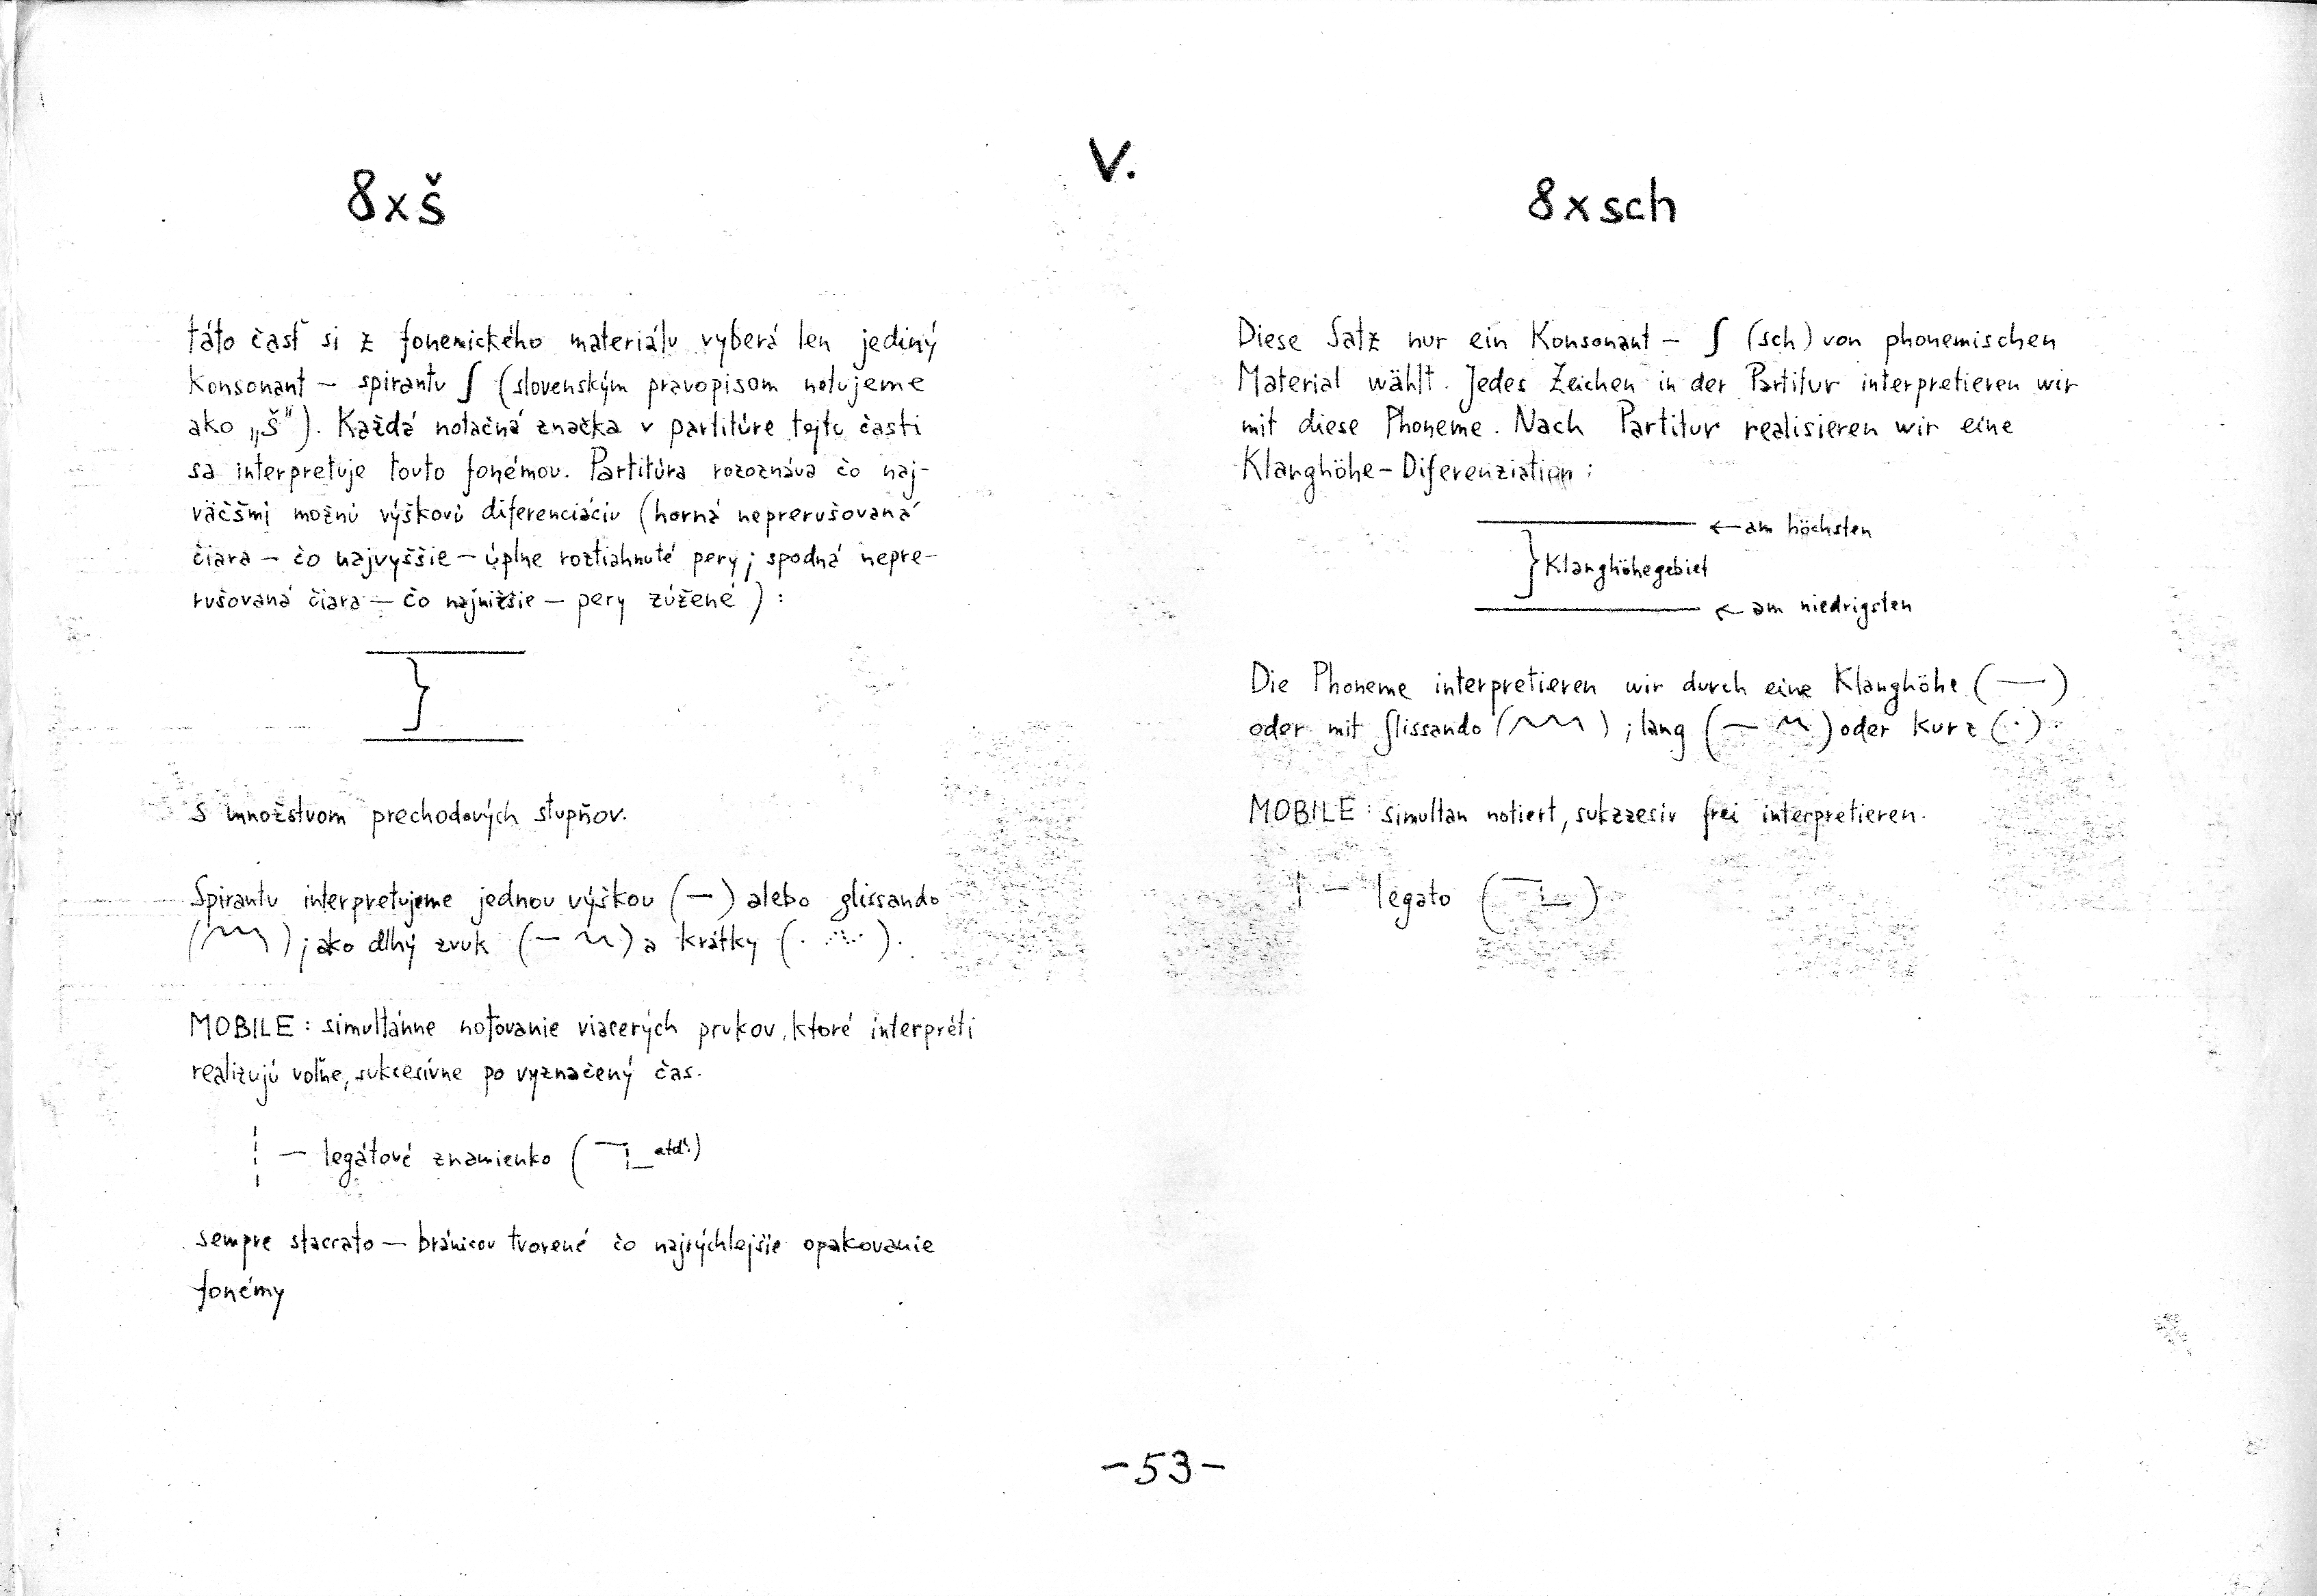 V.
8xš
táto časť si z fonemického materiálu vyberá len jediný
konsonant – spirantu ∫ (slovenským pravopisom notujeme
ako „š"). Každá notačná značka v partitúre tejto časti
sa interpretuje touto fonémou. Partitúra rozoznáva čo naj-
väčšmi možnú výškovú diferenciáciu (horná neprerušovaná
čiara – čo najvyššie – úplne roztiahnuté pery; spodná nepre-
rušovaná čiara – čo najnižšie – pery zúžené):
s množstvom prechodových stupňov.
Spirantu interpretujeme jednou výškou (—) alebo glissando
( ); ako dlhý zvuk (— ) a krátky (. ).
MOBILE: simultánne noťovanie viacerých prvkov, ktoré interpréti
realizujú voľne, sukcesívne po vyznačený čas.
– legátové znamienko ( atď.)
sempre staccato – bránicou tvorené čo najrýchlejšie opakovanie
fonémy
8xsch
Diese Satz nur ein Konsonant – ∫ (sch) von phonemischen
Material wählt. Jedes Zeichen in der Partitur interpretieren wir
mit diese Phoneme. Nach Partitur realisieren wir eine
Klanghöhe-Diferenziation:
← am höchsten
} Klanghöhegebiet
← am niedrigsten
Die Phoneme interpretieren wir durch eine Klanghöhe (—)
oder mit Glissando ( ); lang (— ) oder kurz (.)
MOBILE: simultan notiert, sukzzesiv frei interpretieren.
– legato ( )
-53-